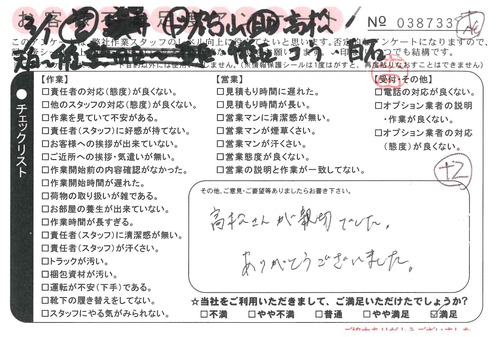 № 038733
【作業】
□責任者の対応(態度)が良くない。
□他のスタッフの対応(態度)が良くない。
□作業を見ていて不安がある。
□責任者(スタッフ)に好感が持てない。
□お客様への挨拶が出来ていない。
□ご近所への挨拶・気遣いが無い。
□作業開始前の内容確認がなかった。
□作業開始時間が遅れた。
□荷物の取り扱いが雑である。
□お部屋の養生が出来ていない。
□作業時間が長すぎる。
□責任者(スタッフ)に清潔感が無い。
□責任者(スタッフ)が汗くさい。
□トラックが汚い。
□梱包資材が汚い。
□運転が不安(下手)である。
□靴下の履き替えをしてない。
□スタッフにやる気がみられない。
チェックリスト
【営業】
□見積もり時間に遅れた。
□見積もり時間が長い。
□営業マンに清潔感が無い。
□営業マンが煙草くさい。
□営業マンが汗くさい。
□営業態度が良くない。
□営業の説明と作業が一致してない。
【受付・その他】
□電話の対応が良くない。
□オプション業者の説明
・作業が良くない。
□オプション業者の対応
(態度)が良くない。
+2
その他、ご意見・ご要望等ありましたらお書き下さい。
高松さんが親切でした。
ありがとうございました。
☆当社をご利用いただきまして、ご満足いただけたでしょうか?
□不満 □やや不満 □普通 □やや満足 ☑満足